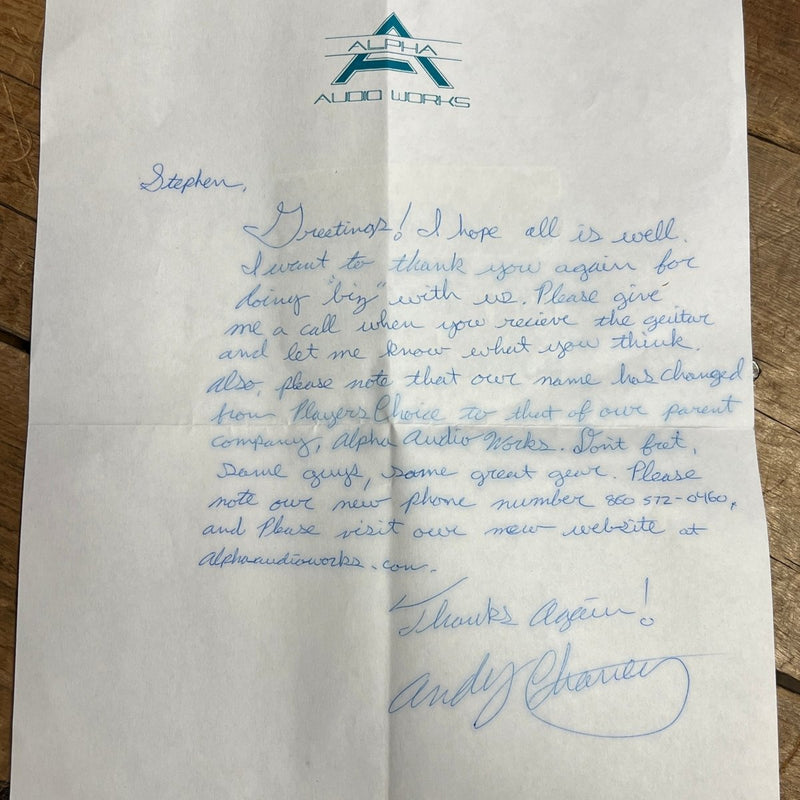 ALPHA
AUDIO WORKS
Stephen,
Greetings! I hope all is well.
I want to thank you again for
doing "biz" with us. Please give
me a call when you recieve the guitar
and let me know what you think.
Also, please note that our name has changed
from Players Choice to that of our parent
company, Alpha Audio Works. Don't fret,
same guys, same great gear. Please
note our new phone number 860 572-0460,
and Please visit our new website at
alphaaudioworks.com.
Thanks Again!
Andy Chaney